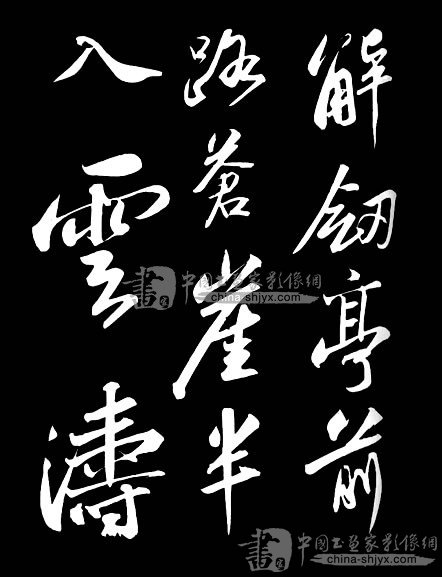 解劒亭前
路蒼崖半
入雲濤
書 中国书画家影像網
china-shjyx.com
書 中国书画家影像網
china-shjyx.com